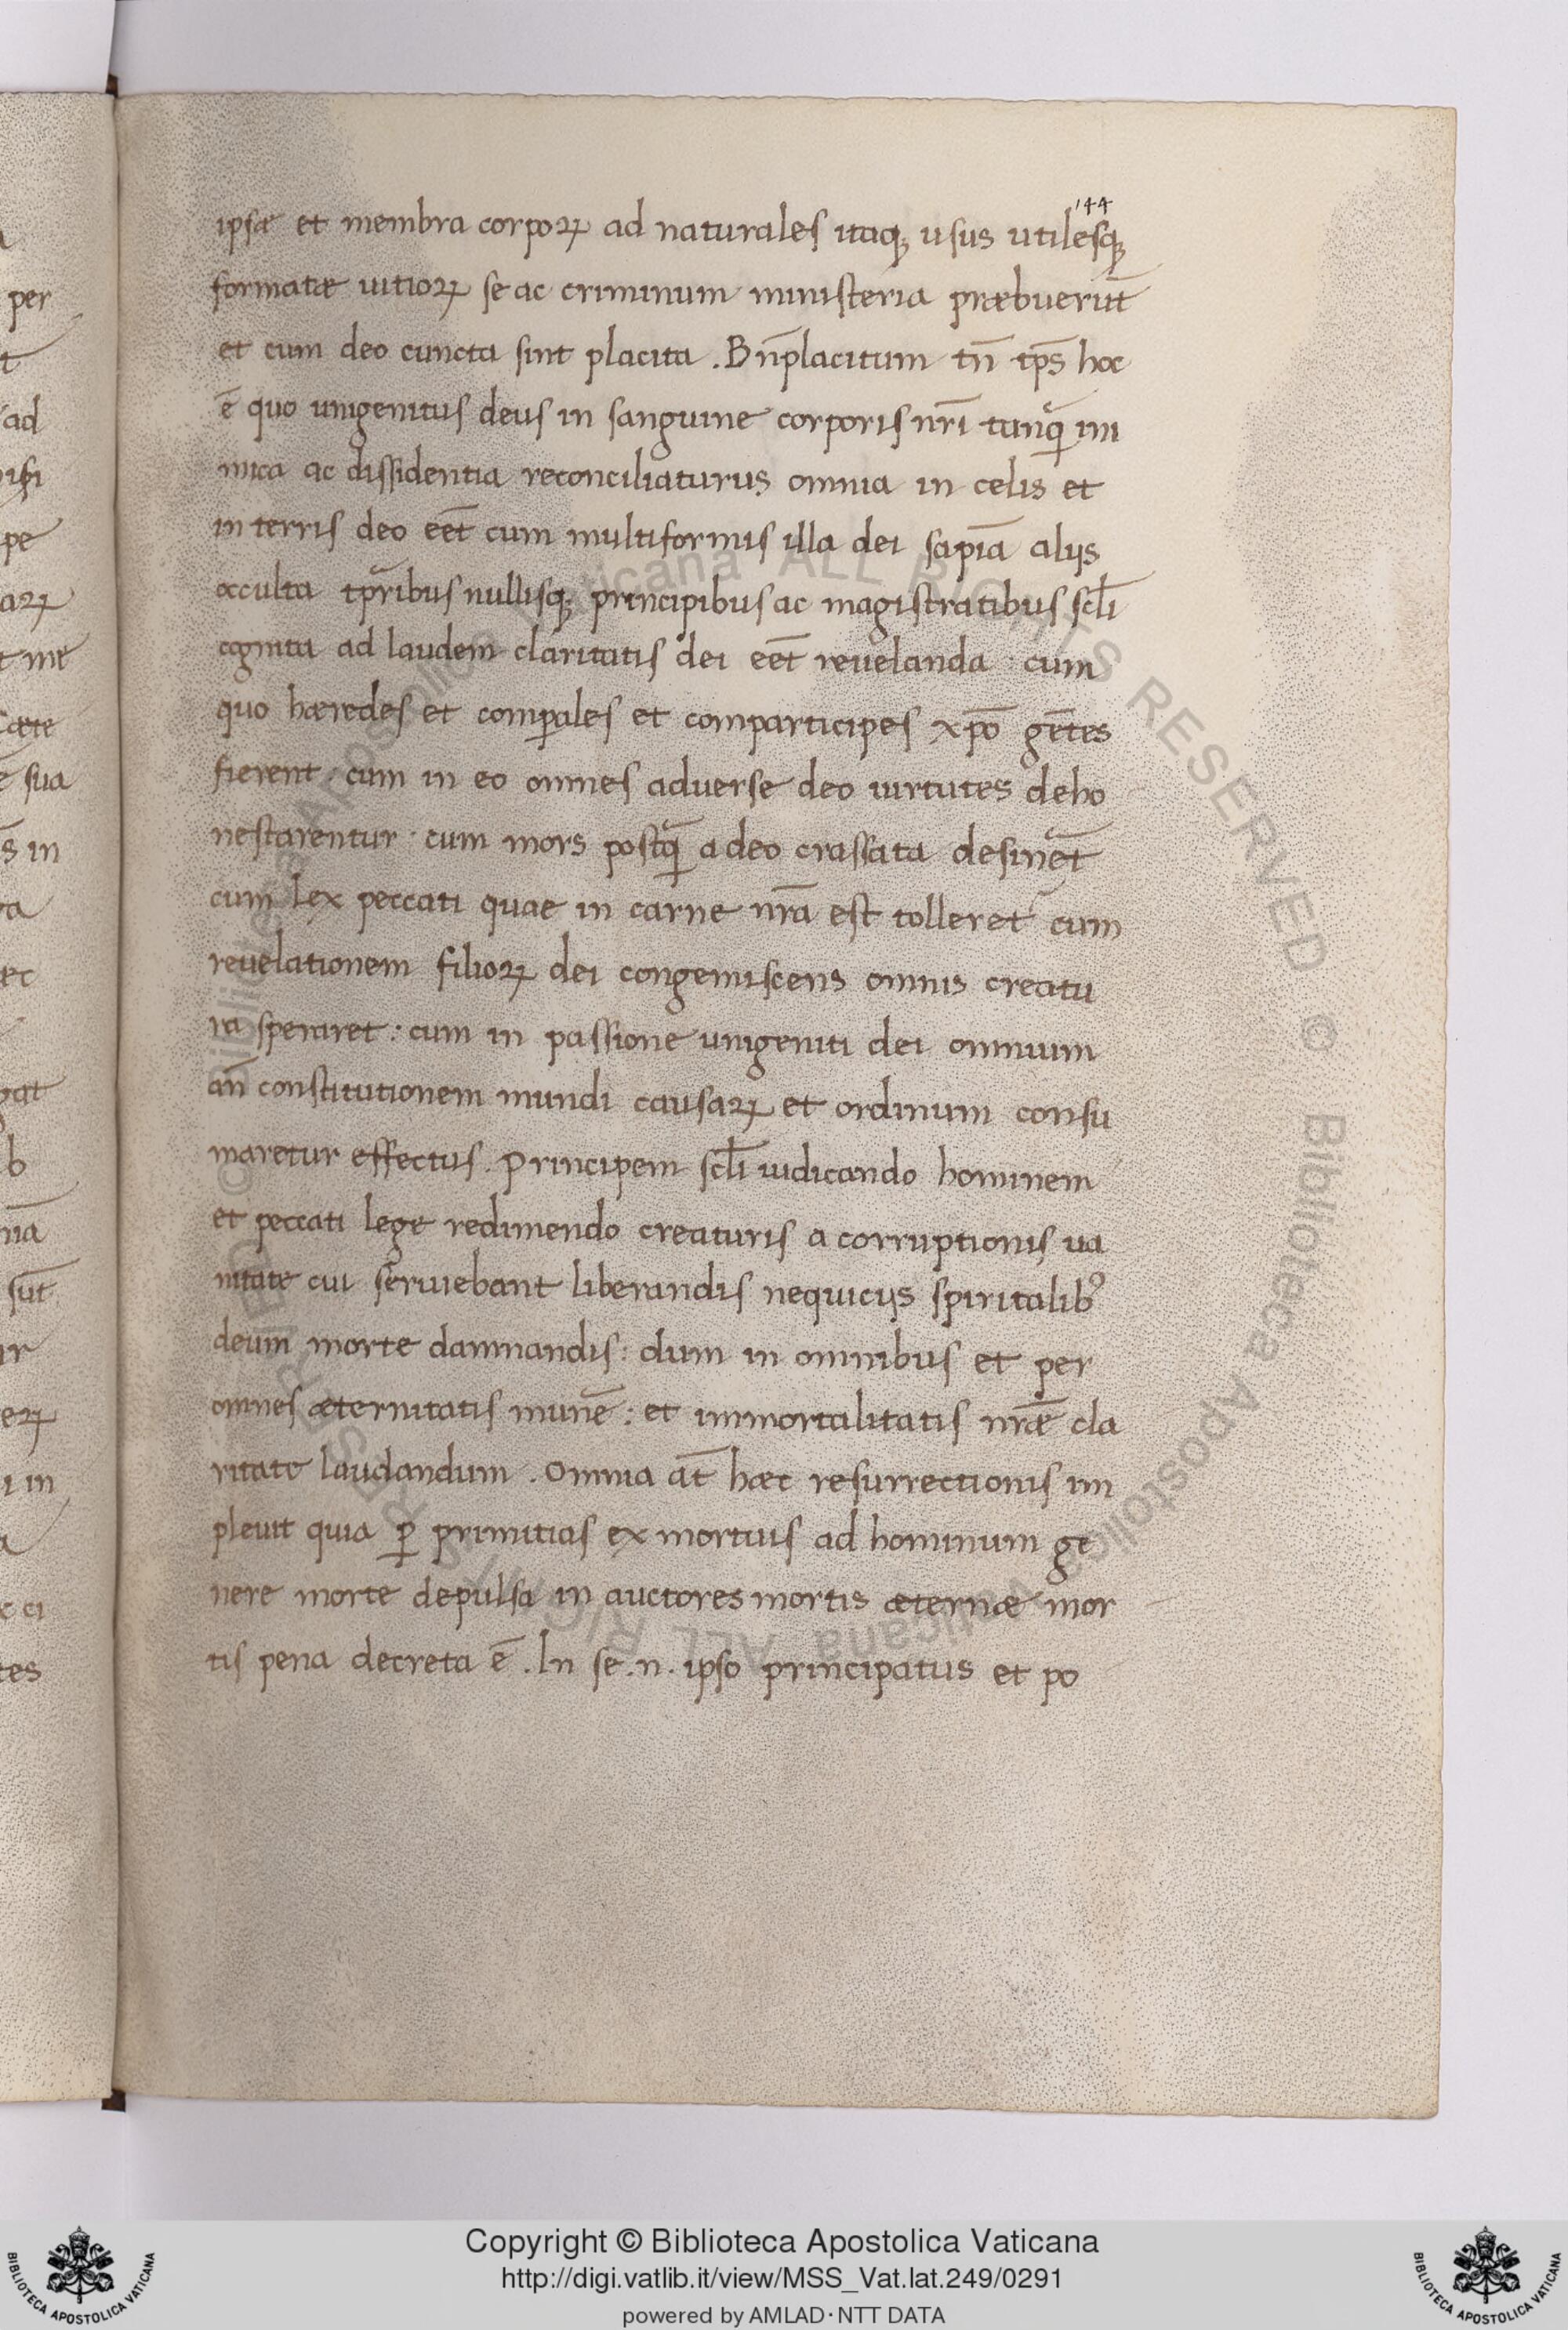 144
ipsæ et membra corpoꝝ ad naturales itaqꝫ usus utilesqꝫ
formatæ uitioꝝ se ac criminum ministeria præbuerūt
et cum deo cuncta sint placita . Bn̄placitum tn̄ tp̄s hoc
ē quo unigenitus deus in sanguine corporis nr̄i tanq̄ ini
mica ac dissidentia reconciliaturus omnia in celis et
in terris deo eēt cum multiformis illa dei sapīa alijs
occulta tp̄ribus nullisqꝫ principibus ac magistratibus scl̄i
cognita ad laudem claritatis dei eēt reuelanda : cum
quo hæredes et comꝑales et comparticipes xp̄o gētes
fierent : cum in eo omnes aduerse deo uirtutes deho
nestarentur : cum mors postq̄ adeo crassata desinēt
cum lex peccati quae in carne nr̄a est tolleret̄ cum
reuelationem filioꝝ dei congemiscens omnis creatu
ra speraret : cum in passione unigeniti dei omnium
an̄ constitutionem mundi causaꝝ et ordinum consu
maretur effectus . Principem scl̄i iudicando hominem
et peccati lege redimendo creaturis a corruptionis ua
nitate cui seruiebant liberandis nequicijs spiritalibꝰ
deum morte damnandis : dum in omnibus et per
omnes æternitatis munē : et immortalitatis nr̄æ cla
ritate laudandum . Omnia at̄ hæc resurrectionis im
pleuit quia ꝑ primitias ex mortuis ad hominum ge
nere morte depulsa in auctores mortis æternæ mor
tis pena decreta ē . In se .n. ipso principatus et po
Copyright © Biblioteca Apostolica Vaticana
http://digi.vatlib.it/view/MSS_Vat.lat.249/0291
powered by AMLAD·NTT DATA